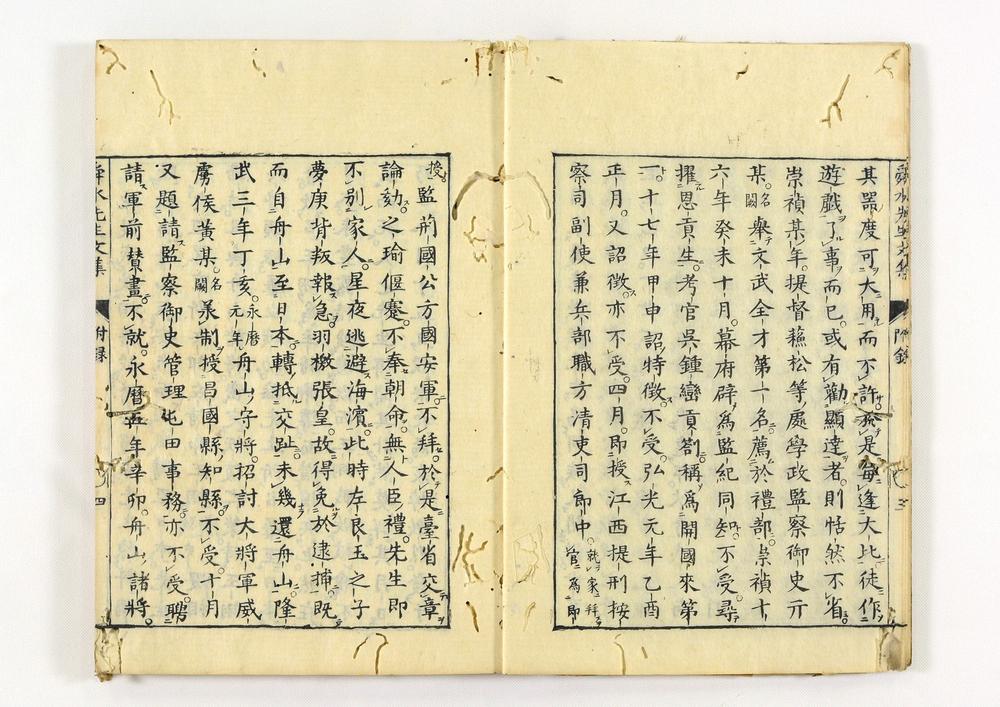 其器度可大用而不許於是每逢大比徒作
遊戲了事而已或有勸顯達者則恬然不省
崇禎某年提督蘓松等處學政監察御史亓
某名闕舉文武全才第一名薦於禮部崇禎十
六年癸未十月幕府辟爲監紀同知不受尋
擢恩貢生考官吳鍾巒貢劄稱爲開國來第
一十七年甲申詔特徵不受弘光元年乙酉
正月又詔徵亦不受四月即授江西提刑按
察司副使兼兵部職方清吏司郎中就家拜官爲即
附錄
三
授監荊國公方國安軍不拜於是臺省交章
論劾之瑜偃蹇不奉朝命無人臣禮先生即
不別家人星夜逃避海濱此時左良玉之子
夢庚背叛報急羽檄張皇故得免於逮捕既
而自舟山至日本轉抵交趾未幾還舟山隆
武三年丁亥永曆元年舟山守將招討大將軍威
虜侯黃某名闕承制授昌國縣知縣不受十月
又題請監察御史管理屯田事務亦不受聘
請軍前贊畫不就永曆五年辛卯舟山諸將
舜水先生文集
附錄
四